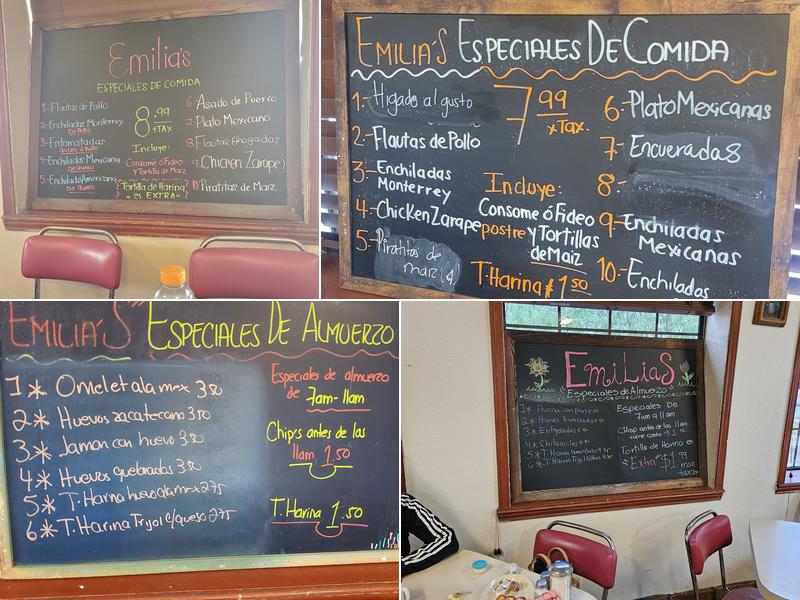 Emilia's
ESPECIALES DE COMIDA
1-Flautas de Pollo
2-Enchiladas Monterrey
DE POLLO
3-Entomatadas
QUESO O POLLO
4-Enchiladas Mexicana
DE QUESO
5-Enchiladas Americana
DE QUESO
8.99
+TAX
Incluye:
Consome ó Fideo
Y Tortilla de Maiz
Tortilla de Harina
es EXTRA
6-Asado de Puerco
7-Plato Mexicano
8-Flautas Ahogadas
9-Chicken Zarape
Piratitas de Maiz.
EMILIA'S ESPECIALES DE COMIDA
1.-Higado al gusto
2.-Flautas de Pollo
3.-Enchiladas
Monterrey
4.-Chicken Zarape
5.-Piratitas de
maiz (4)
7.99
x Tax.
Incluye:
Consome ó Fideo
postre y Tortillas
de Maiz
T. Harina $1.50
6.-Plato Mexicanas
7.-Encueradas
8.-
9.-Enchiladas
Mexicanas
10.-Enchiladas
EMILIA'S ESPECIALES DE ALMUERZO
1* Omelet ala mex 3.50
2* Huevos zacatecano 3.50
3* Jamon con huevo 3.50
4* Huevos quebrados 3.50
5* T. Harina huevo ala mex 2.75
6* T. Harina Frijol c/queso 2.75
Especiales de almuerzo
de 7am-11am
Chips antes de las
11am 1.50
T. Harina 1.50
EMiLiAS
Especiales de Almuerzo
3* Entomatadas
4* Chilaquiles
Especiales De
7am a 11am
Chips antes de las 11am
tiene costo
Tortilla de Harina es
"Extra" $1.99